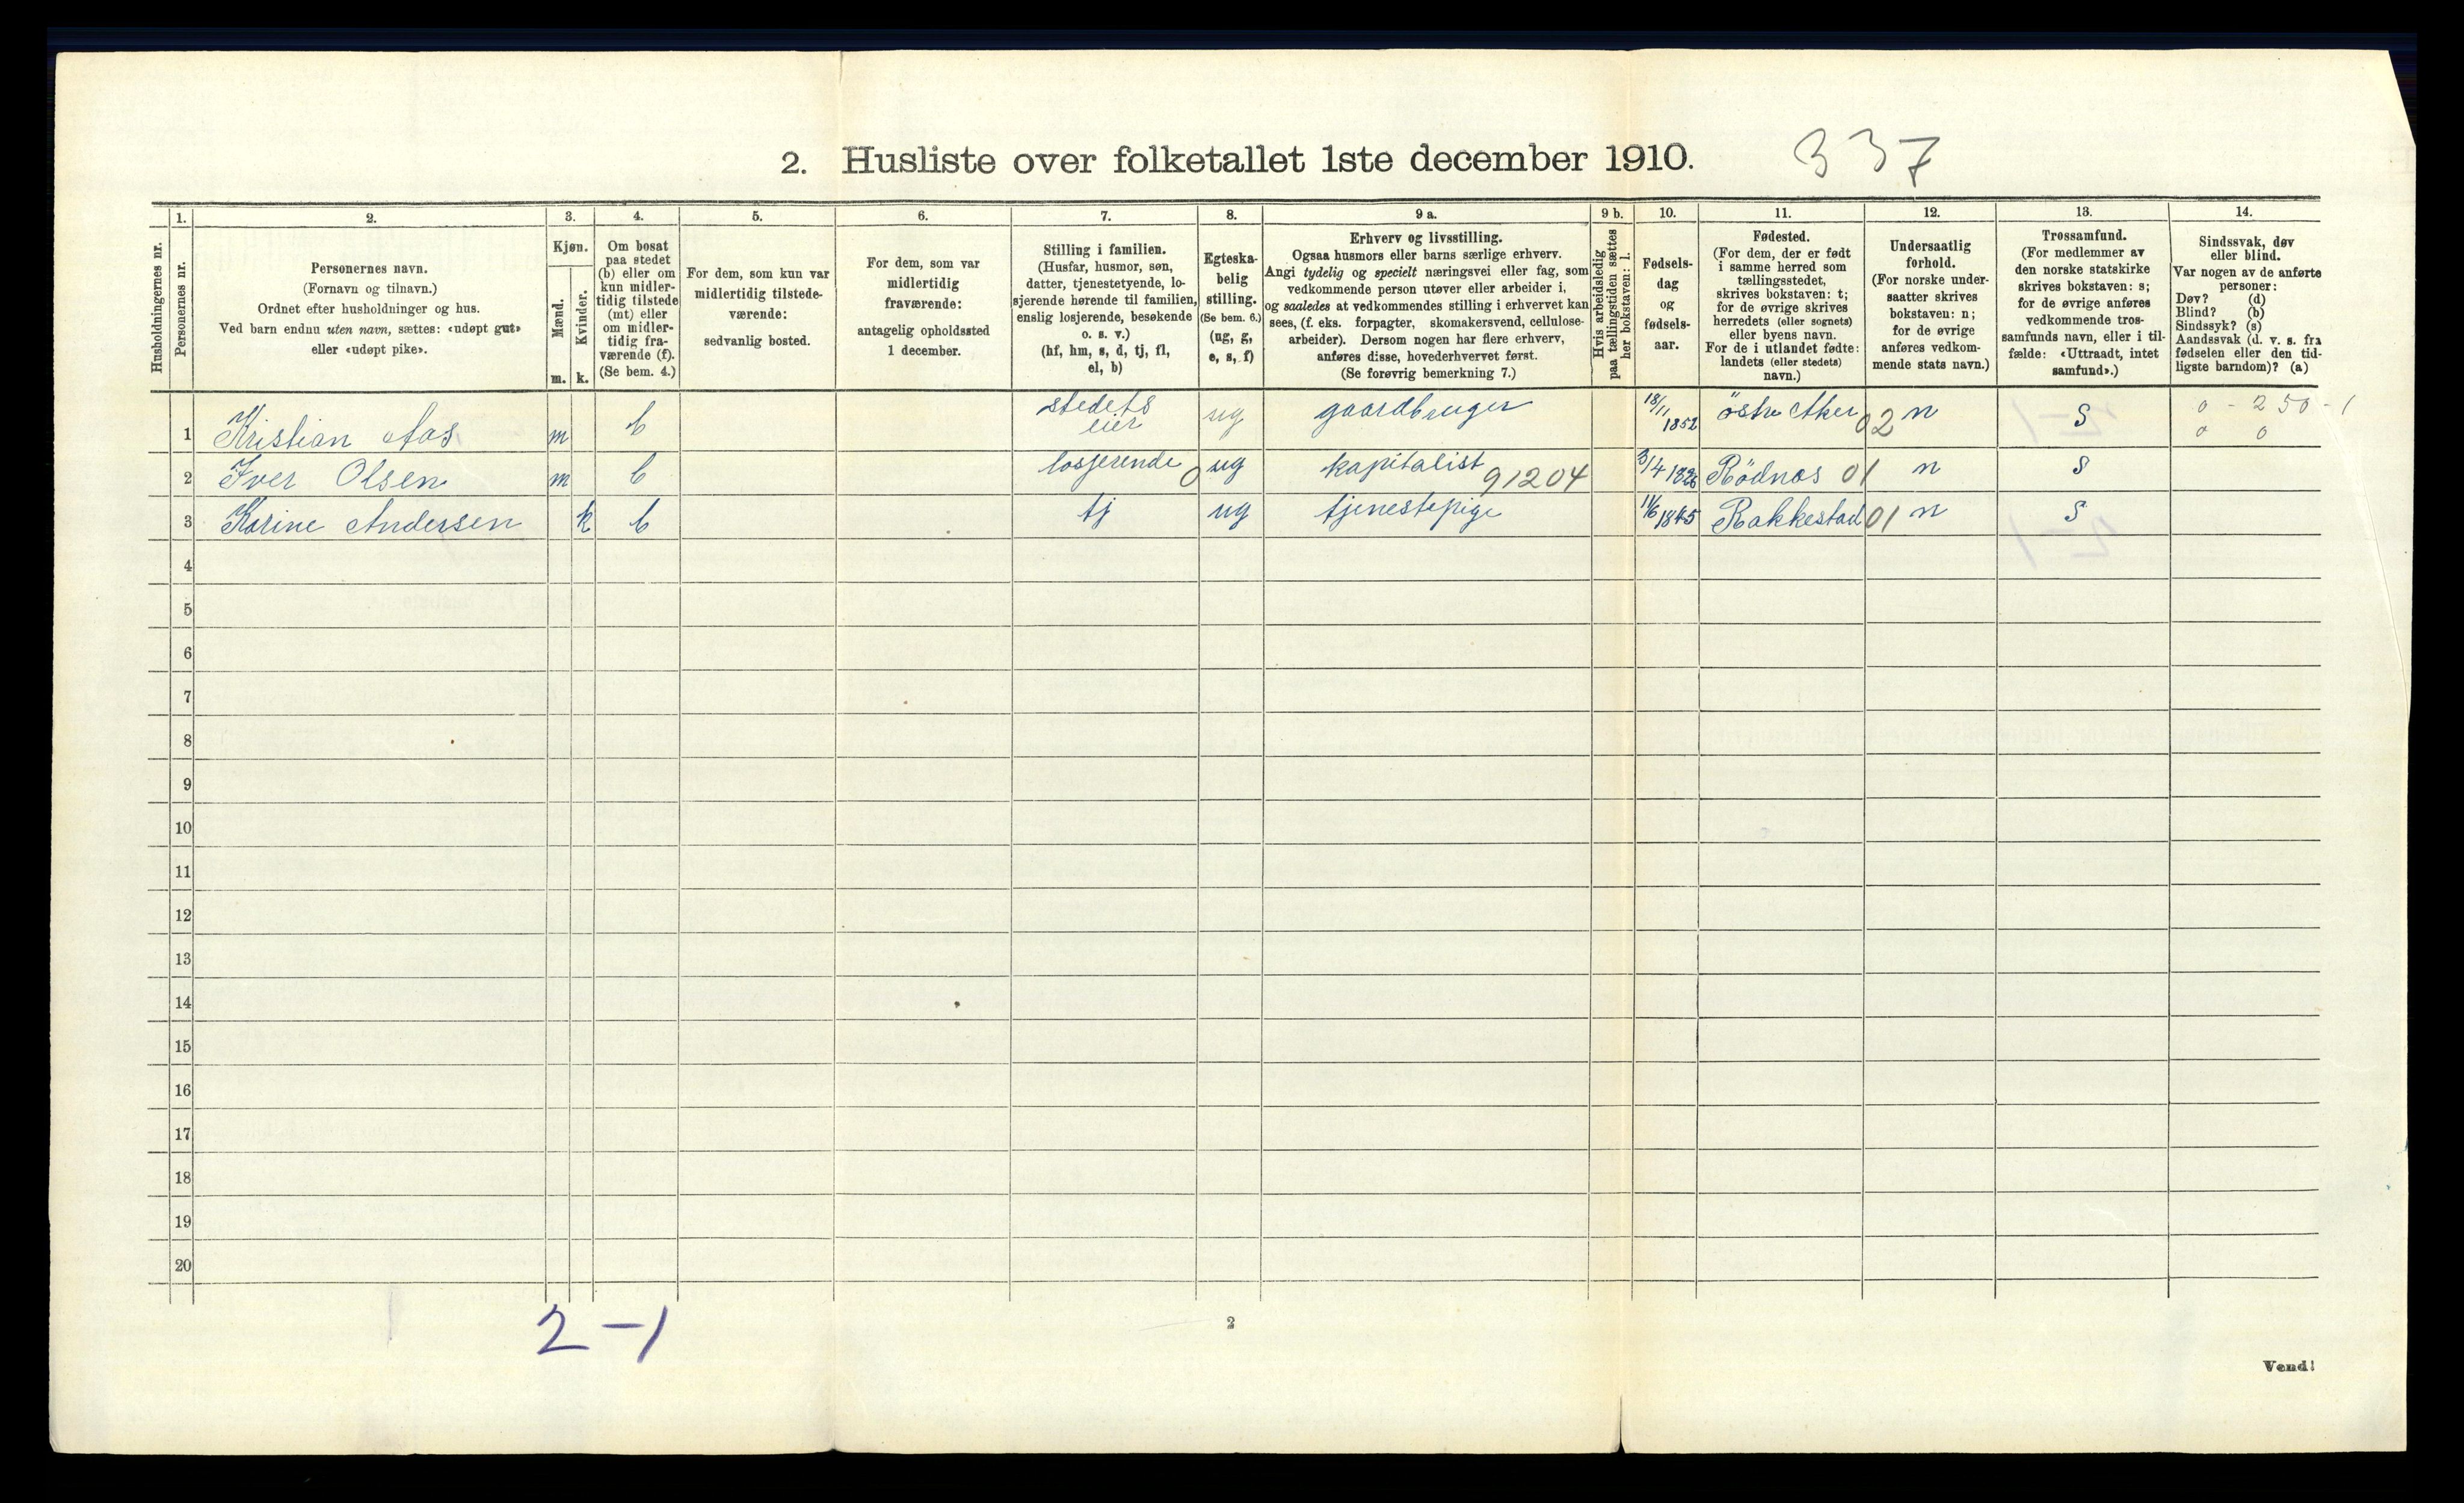 2. Husliste over folketallet 1ste december 1910. 337
Husholdningernes nr.
1.
Personernes nr.
2.
Personernes navn.
(Fornavn og tilnavn.)
Ordnet efter husholdninger og hus.
Ved barn endnu uten navn, sættes: «udøpt gut»
eller «udøpt pike».
3.
Kjøn.
Mænd.
Kvinder.
m. k.
4.
Om bosat
paa stedet
(b) eller om
kun midler-
tidig tilstede
(mt) eller
om midler-
tidig fra-
værende (f).
(Se bem. 4.)
5.
For dem, som kun var
midlertidig tilstede-
værende:
sedvanlig bosted.
6.
For dem, som var
midlertidig
fraværende:
antagelig opholdssted
1 december.
7.
Stilling i familien.
(Husfar, husmor, søn,
datter, tjenestetyende, lo-
sjerende hørende til familien,
enslig losjerende, besøkende
o. s. v.)
(hf, hm, s, d, tj, fl,
el, b)
8.
Egteska-
belig
stilling.
(Se bem. 6.)
(ug, g,
e, s, f)
9 a.
Erhverv og livsstilling.
Ogsaa husmors eller barns særlige erhverv.
Angi tydelig og specielt næringsvei eller fag, som
vedkommende person utøver eller arbeider i,
og saaledes at vedkommendes stilling i erhvervet kan
sees, (f. eks. forpagter, skomakersvend, cellulose-
arbeider). Dersom nogen har flere erhverv,
anføres disse, hovederhvervet først.
(Se forøvrig bemerkning 7.)
9 b.
Hvis arbeidsledig
paa tællingstiden sættes
her bokstaven: l.
10.
Fødsels-
dag
og
fødsels-
aar.
11.
Fødested.
(For dem, der er født
i samme herred som
tællingsstedet,
skrives bokstaven: t;
for de øvrige skrives
herredets (eller sognets)
eller byens navn.
For de i utlandet fødte:
landets (eller stedets)
navn.)
12.
Undersaatlig
forhold.
(For norske under-
saatter skrives
bokstaven: n;
for de øvrige
anføres vedkom-
mende stats navn.)
13.
Trossamfund.
(For medlemmer av
den norske statskirke
skrives bokstaven: s;
for de øvrige anføres
vedkommende tros-
samfunds navn, eller i til-
fælde: «Uttraadt, intet
samfund».)
14.
Sindssvak, døv
eller blind.
Var nogen av de anførte
personer:
Døv? (d)
Blind? (b)
Sindssyk? (s)
Aandssvak (d. v. s. fra
fødselen eller den tid-
ligste barndom)? (a)
1 Kristian Aas m b stedets eier ug gaardbruger 18/11 1852 östre Aker 02 n S 0 - 250 - 1
0 0
2 Iver Olsen m b losjerende 0 ug kapitalist 91204 3/4 1826 Rödnes 01 n S
3 Karine Andersen k b tj ug tjenestepige 11/6 1845 Rakkestad 01 n S
4
5
6
7
8
9
10
11
12
13
14
15
16
17
18
19
20
2 - 1
2
Vend!